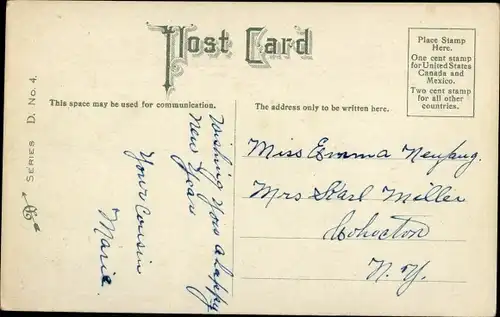 Post Card
Place Stamp
Here.
One cent stamp
for United States
Canada and
Mexico.
Two cent stamp
for all other
countries.
This space may be used for communication.
The address only to be written here.
SERIES D. No. 4.
Wishing you a happy
New Year
Your cousin
Marie.
Miss Emma
Mrs Karl Miller
Cohocton
N.Y.